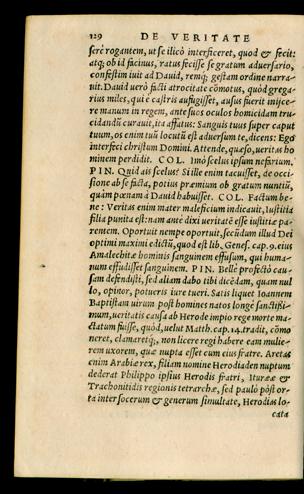 129 DE VERITATE
ferè rogantem, ut se ilicò interficeret, quod & fecit:
atq; ob id facinus, ratus fecisse se gratum aduersario,
confestim iuit ad Dauid, remq; gestam ordine narra-
uit. Dauid uerò facti atrocitate cōmotus, quòd grega-
rius miles, qui è castris aufugisset, ausus fuerit inijce-
re manum in regem, ante suos oculos homicidam tru-
cidandū curauit, ita affatus: Sanguis tuus super caput
tuum, os enim tuū locutū est aduersum te, dicens: Ego
interfeci christum Domini. Attende, quæso, ueritas ho
minem perdidit. COL. Imò scelus ipsum nefarium.
PIN. Quid ais scelus? Si ille enim tacuisset, de occi-
sione ab se facta, potius præmium ob gratum nuntiū,
quàm pœnam à Dauid habuisset. COL. Factum be-
ne: Veritas enim mater maleficium indicauit, Iustitia
filia punita est: nam ante dixi ueritatē esse iustitiæ pa-
rentem. Oportuit nempe oportuit, secūdum illud Dei
optimi maximi edictū, quod est lib. Genes. cap. 9. eius
Amalechitæ hominis sanguinem effusum, qui huma-
num effudisset sanguinem. PIN. Bellè profectò cau-
sam defendisti, sed aliam dabo tibi dicēdam, quam nul
lo, opinor, potueris iure tueri. Satis liquet Ioannem
Baptistam uirum post homines natos longè sanctissi-
mum, ueritatis causa ab Herode impio rege morte ma-
ctatum fuisse, quòd, uelut Matth. cap. 14. tradit, cōmo
neret, clamaretq;, non licere regi habere eam mulie-
rem uxorem, quæ nupta esset cum eius fratre. Aretas
enim Arabiæ rex, filiam nomine Herodiaden nuptum
dederat Philippo ipsius Herodis fratri, Itureæ &
Trachonitidis regionis tetrarchæ, sed paulò pòst or-
ta inter socerum & generum simultate, Herodias lo-
cata